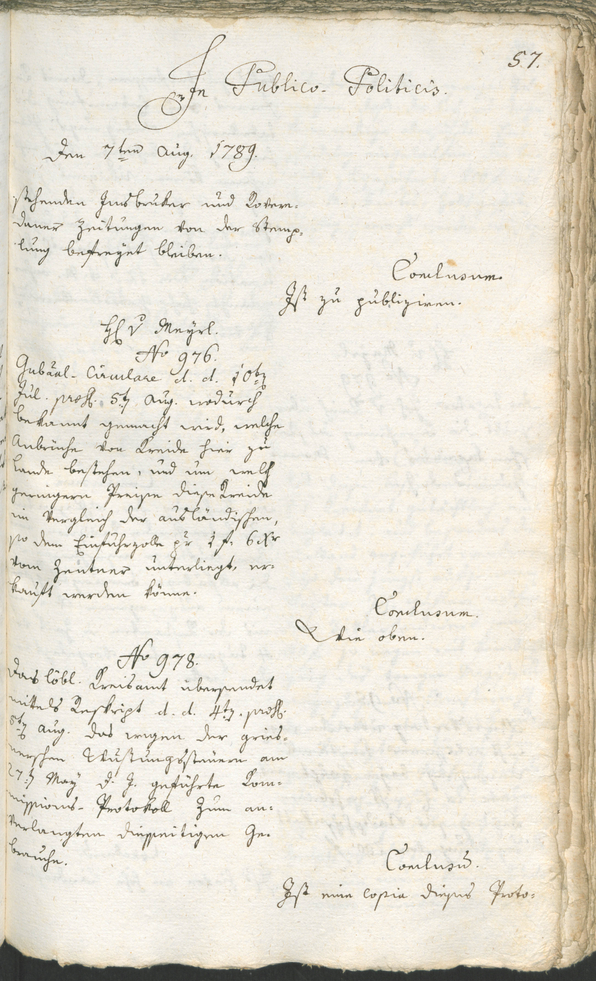 57.
In Publico-Politicis.
Den 7ten Aug. 1789.
stehenden Insbruker und Rovere-
daner Zeitungen von der Stemp-
lung befreyet bleiben.
Conclusum.
Ist zu publiziren.
H. v Meyrl.
No 976.
Gubäal-Circulare d. d. 10t
Jul. prst. 5t Aug. wodurch
bekannt gemacht wird, welche
Anbrüche von Kreide hier zu
Lande bestehen, und um welch
geringern Preise diese Kreide
im Vergleich der ausländischen,
so dem Einfuhrzolle pr 1 f. 6 Xr
vom Zentner unterliegt, er-
kauft werden könne.
Conclusum.
Wie oben.
No 978.
Das löbl. Kreisamt übersendet
mittels Reskript d. d. 4t prst.
5t Aug. das wegen der gries-
nerschen Wustungssteuern am
27t May d. J. geführte Kom-
missions-Protokoll zum an-
verlangten diesseitigen Ge-
brauche.
Conclusu.
Ist eine Copia dieses Proto-